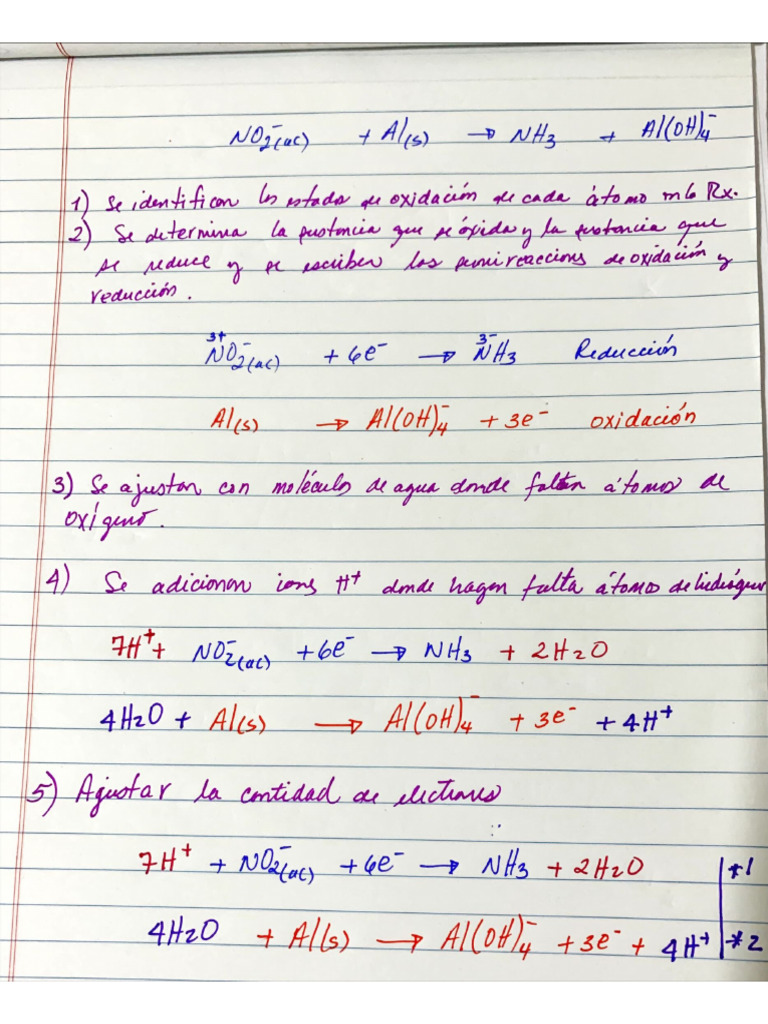 NO₂⁻(ac) + Al(s) → NH₃ + Al(OH)₄⁻
1) Se identifican los estado de oxidación de cada átomo Rx.
2) Se determina la sustancia que se óxida y la sustancia que
se reduce y se escriben las semirreacciones de oxidación y
reducción.
3+ 3-
NO₂⁻(ac) + 6e⁻ → NH₃ Reducción
Al(s) → Al(OH)₄⁻ + 3e⁻ oxidación
3) Se ajustan con moléculas de agua donde faltan átomos de
oxígeno.
4) Se adicionan ions H⁺ donde hagan falta átomos de hidrógeno
7H⁺ + NO₂⁻(ac) + 6e⁻ → NH₃ + 2H₂O
4H₂O + Al(s) → Al(OH)₄⁻ + 3e⁻ + 4H⁺
5) Ajustar la cantidad de electrones
7H⁺ + NO₂⁻(ac) + 6e⁻ → NH₃ + 2H₂O | *1
4H₂O + Al(s) → Al(OH)₄⁻ + 3e⁻ + 4H⁺ | *2